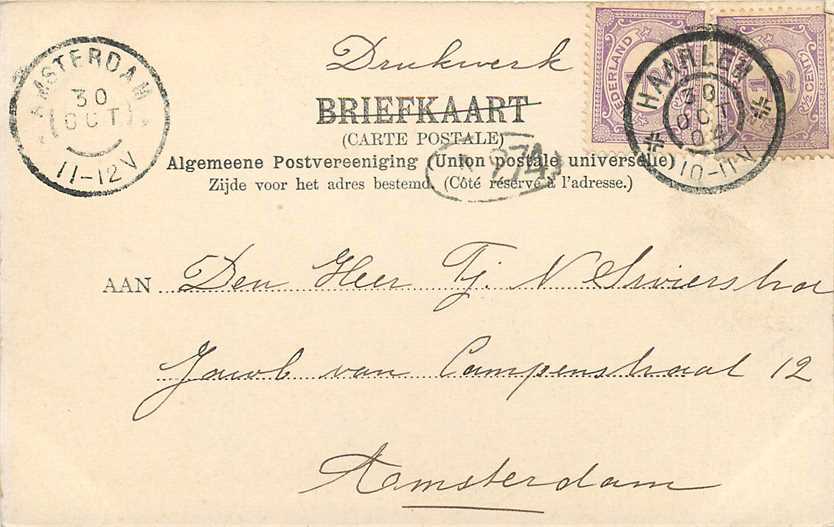 Drukwerk
BRIEFKAART
(CARTE POSTALE)
Algemeene Postvereeniging (Union postale universelle)
Zijde voor het adres bestemd. (Côté réservé à l'adresse.)
AAN Den Heer Tj. N
Jacob van Campenstraat 12
Amsterdam
AMSTERDAM
30
OCT
11-12V
HAARLEM
30
OCT
04
10-11V
774
NEDERLAND
1
½ CENT